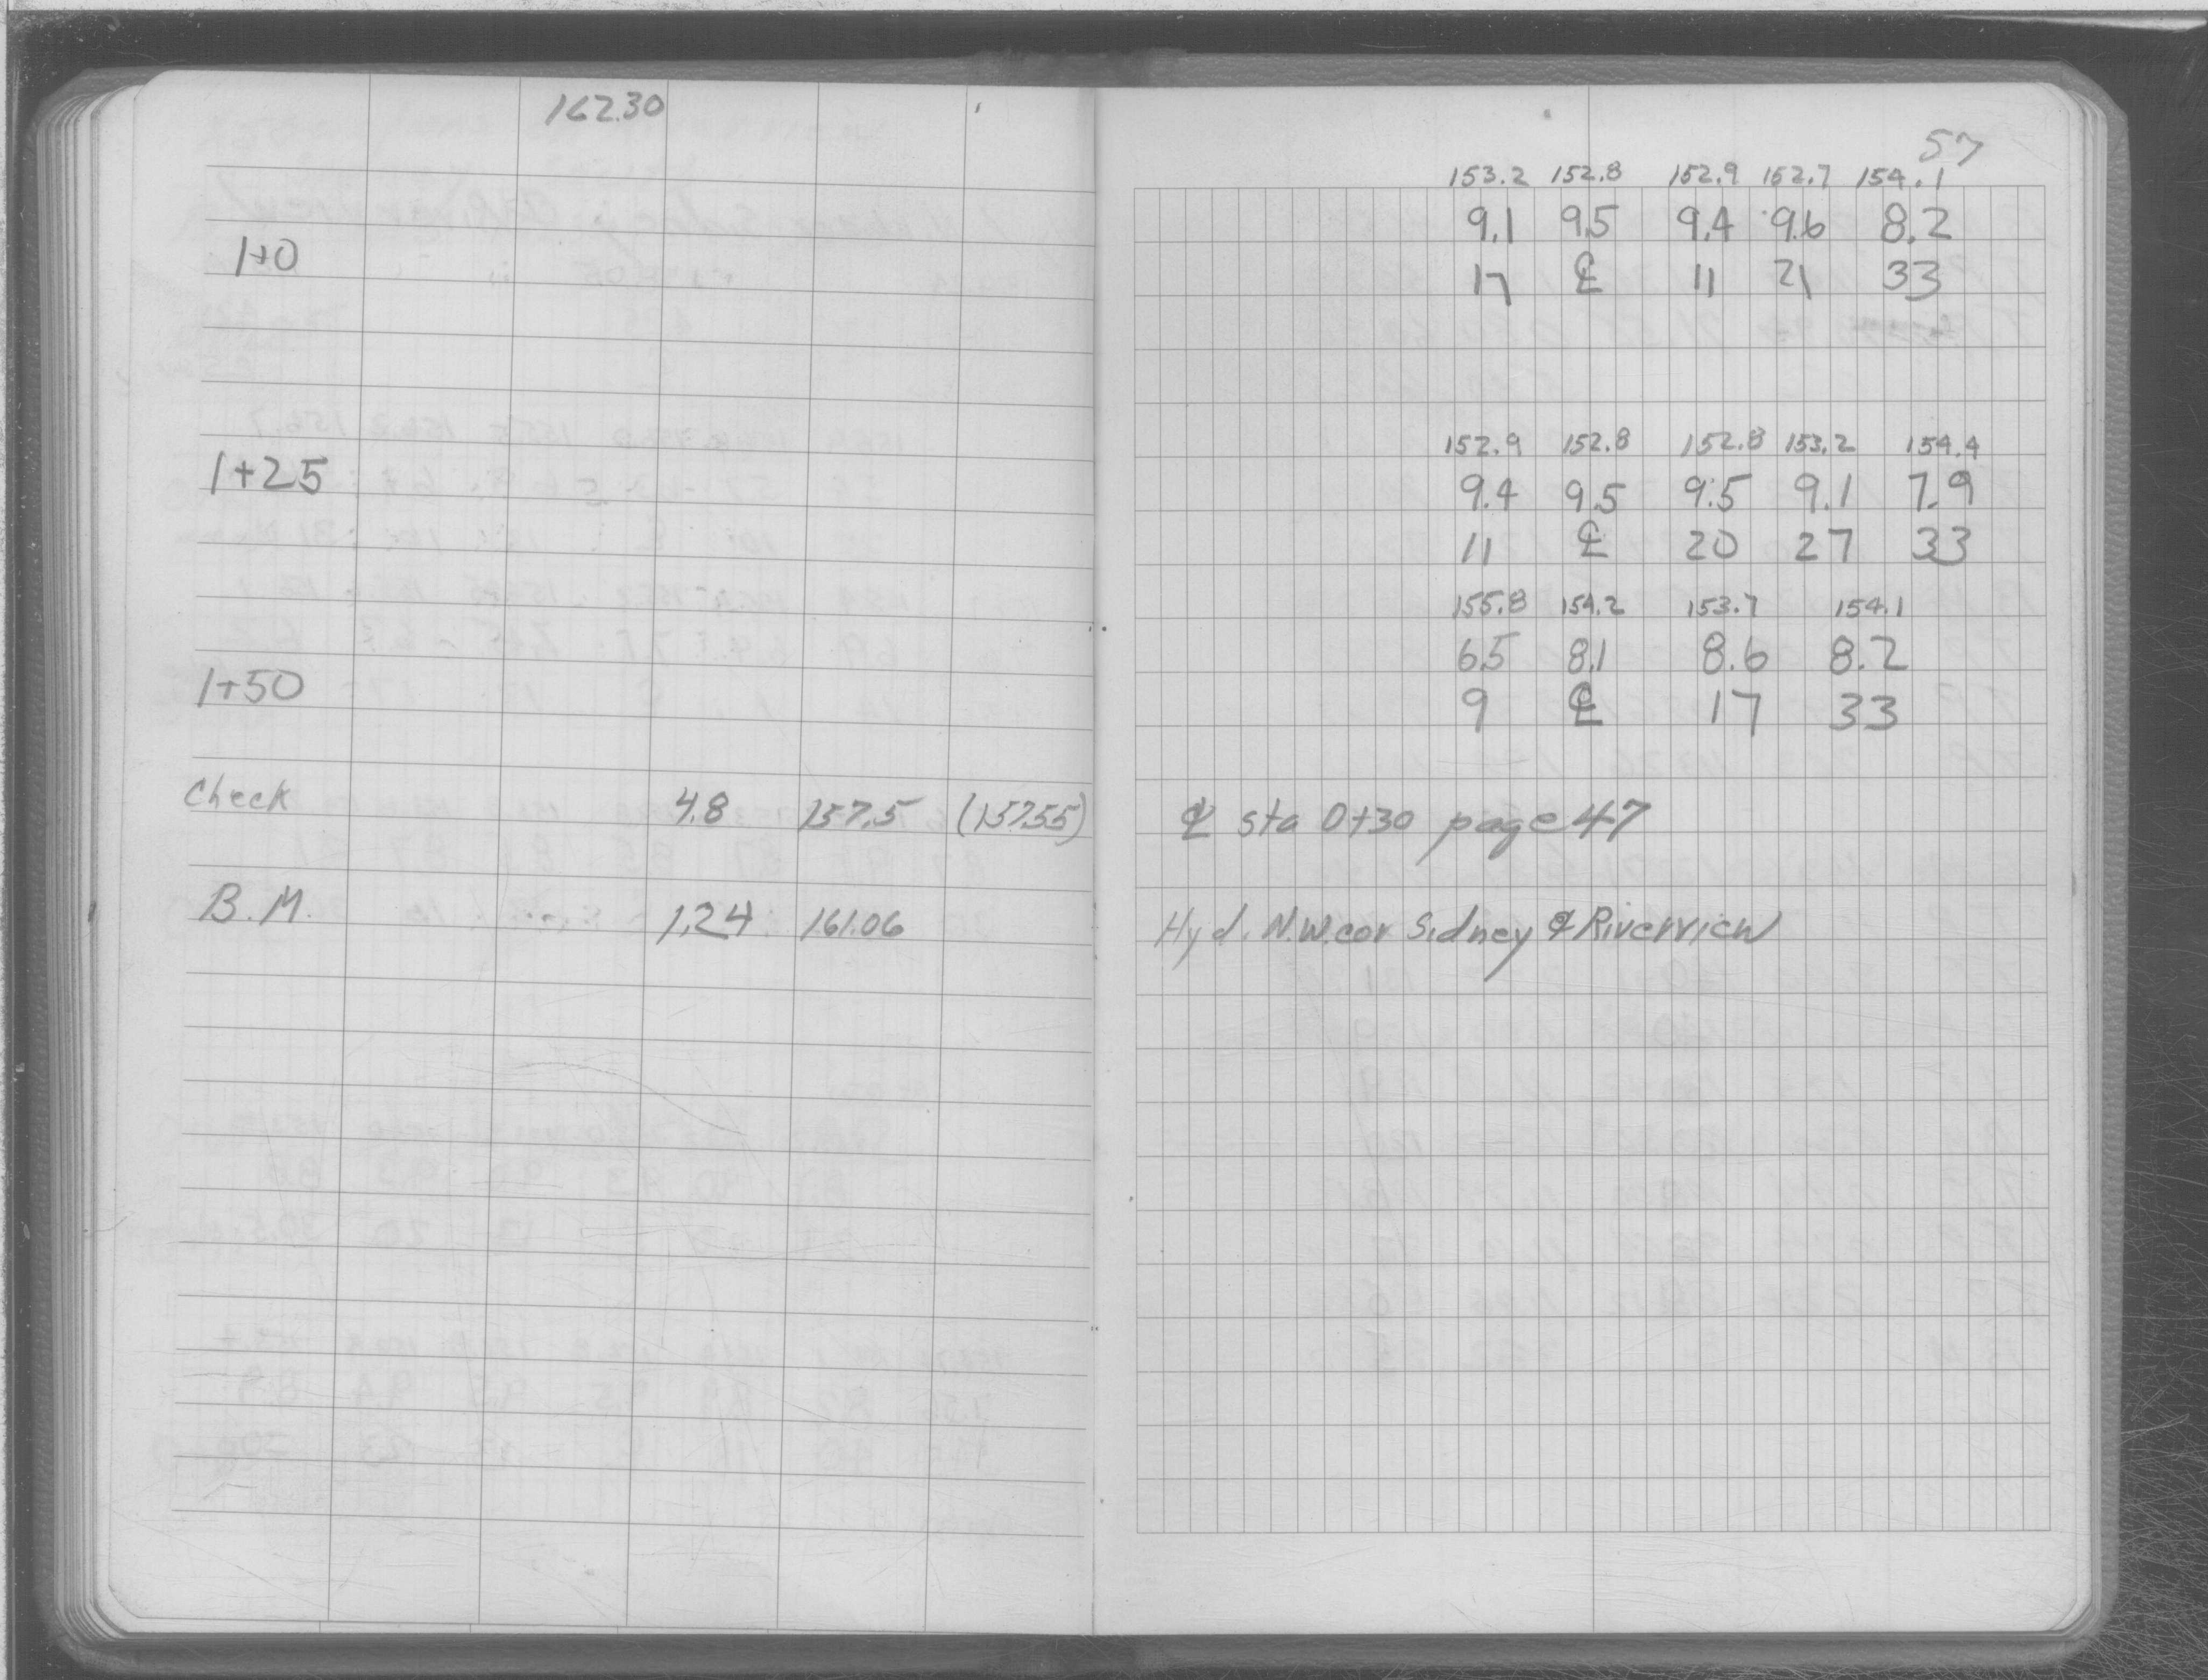 162.30
57
153.2 152.8 152.9 152.7 154.1
9.1 9.5 9.4 9.6 8.2
1+0
17 ℄ 11 21 33
152.9 152.8 152.8 153.2 154.4
1+25
9.4 9.5 9.5 9.1 7.9
11 ℄ 20 27 33
155.8 154.2 153.7 154.1
6.5 8.1 8.6 8.2
1+50
9 ℄ 17 33
Check 4.8 157.5 (157.55) ℄ sta 0+30 page 47
B.M. 1.24 161.06 Hyd. N.W. cor Sidney & Riverview